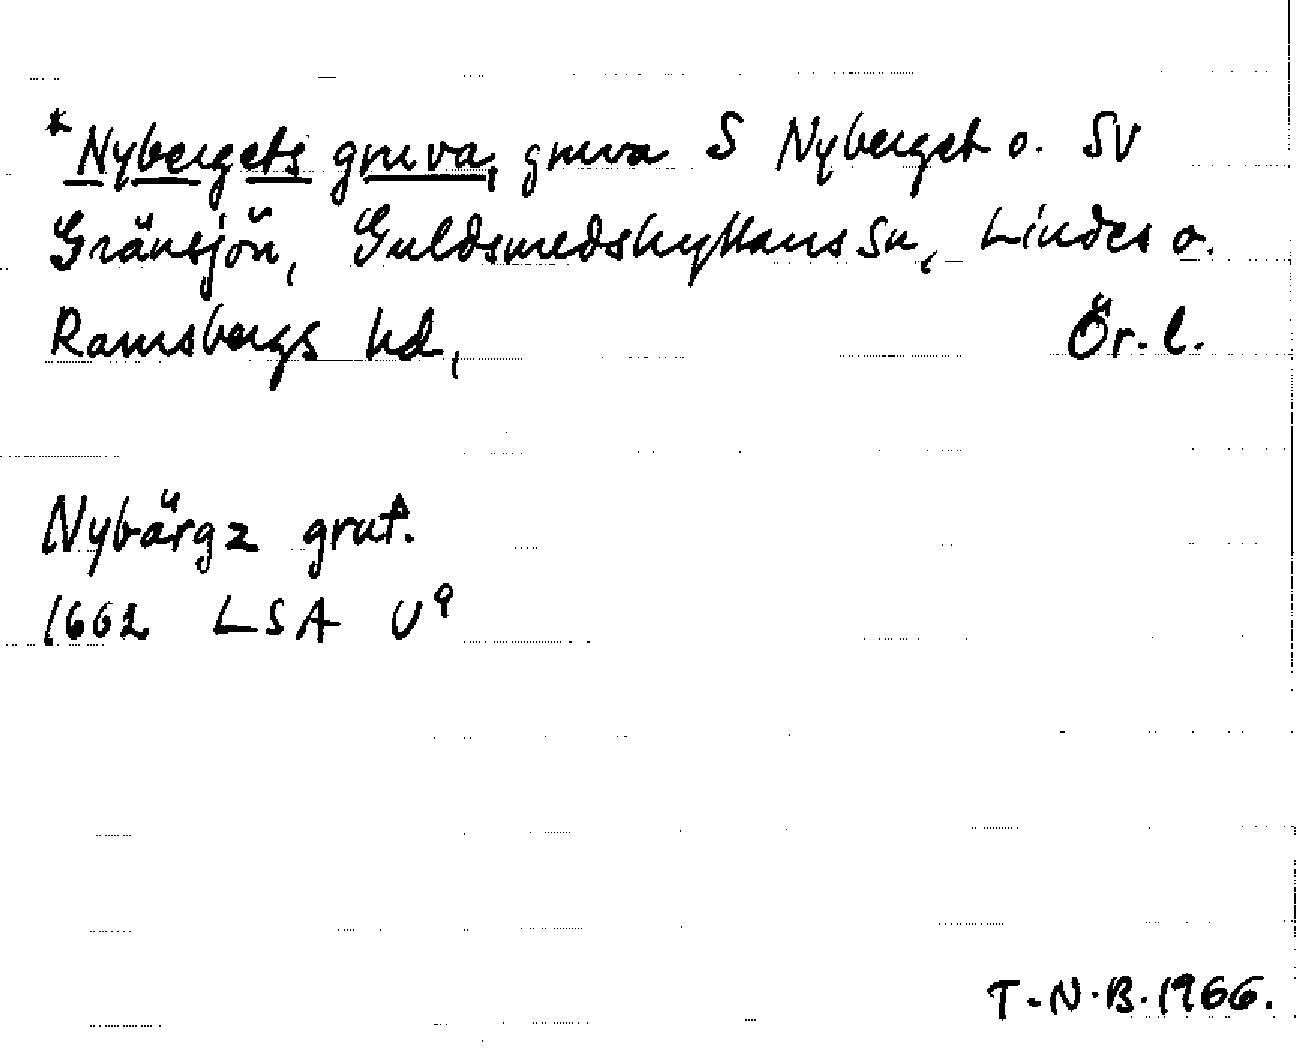 *Nybergets gruva, gruva S Nyberget o. SV
Gränsjön, Guldsmedshyttans sn, Lindes o.
Ramsbergs hd, Ör. l.
Nybärgz gruf.
1662 LSA U9
T-N.B.1966.